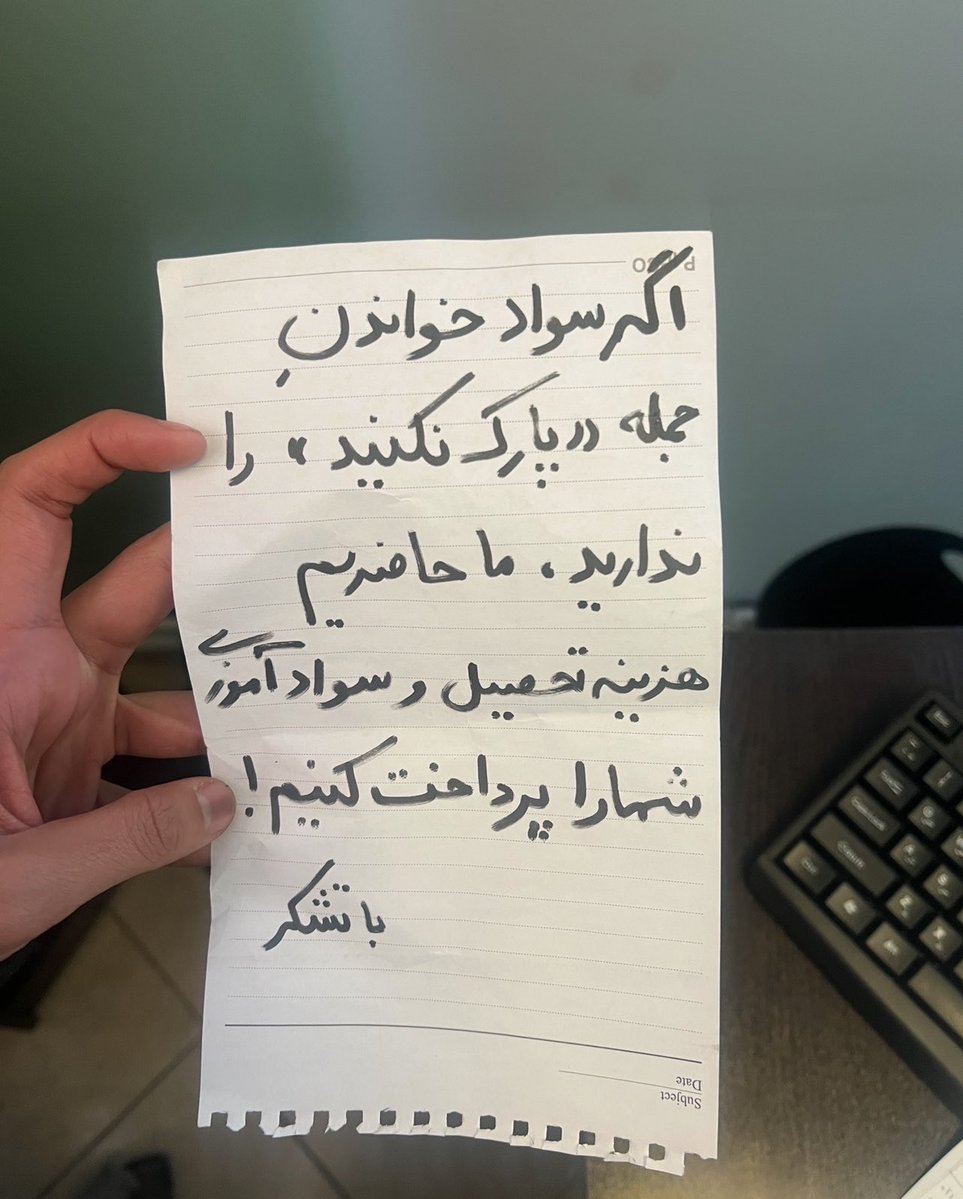 اگر سواد خواندنِ
جمله «پارک نکنید» را
ندارید، ما حاضریم
هزینه تحصیل و سواد آموزی
شما را پرداخت کنیم!
با تشکر
Date
Subject